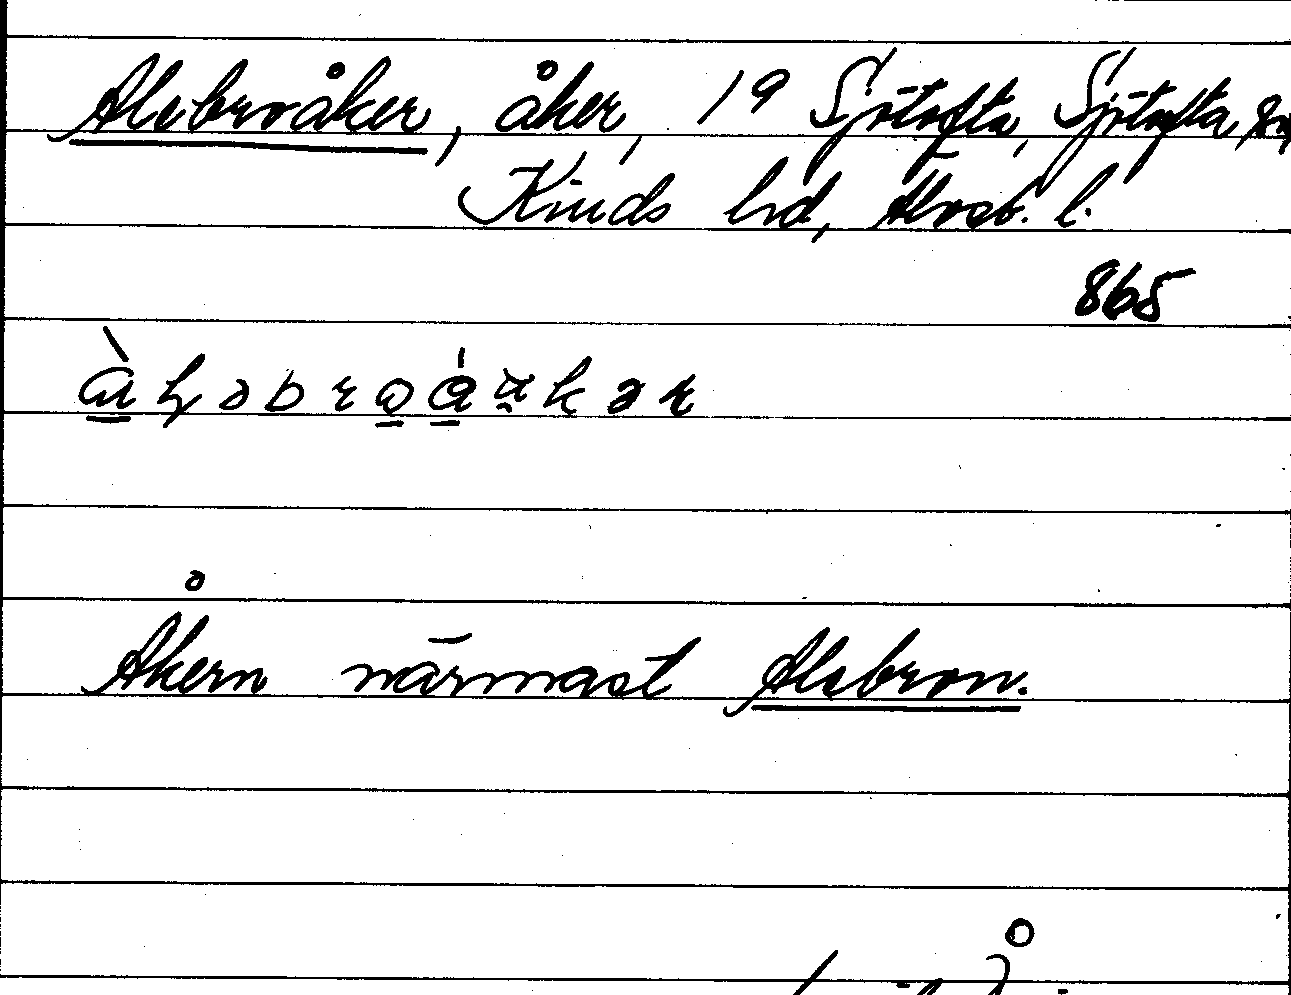 Alebroåker, åker, 19 Sjötofta, Sjötofta sn,
Kinds hd, Älvsb. l.
865
Åkern närmast Alebron.